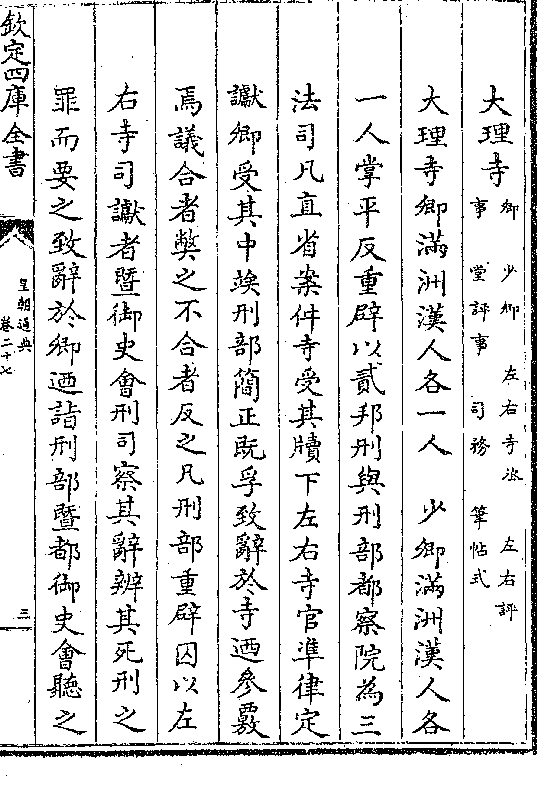 大理寺 卿 少卿 左右寺丞 左右評
事 堂評事 司務 筆帖式
大理寺卿滿洲漢人各一人 少卿滿洲漢人各
一人掌平反重辟以貳邦刑與刑部都察院為三
法司凡直省案件寺受其牘下左右寺官凖律定
讞卿受其中竢刑部簡正既孚致辭於寺迺參覈
焉議合者弊之不合者反之凡刑部重辟囚以左
右寺司讞者暨御史會刑司察其辭辨其死刑之
罪而要之致辭於卿迺詣刑部暨都御史會聽之
欽定四庫全書
皇朝通典
卷二十七
三